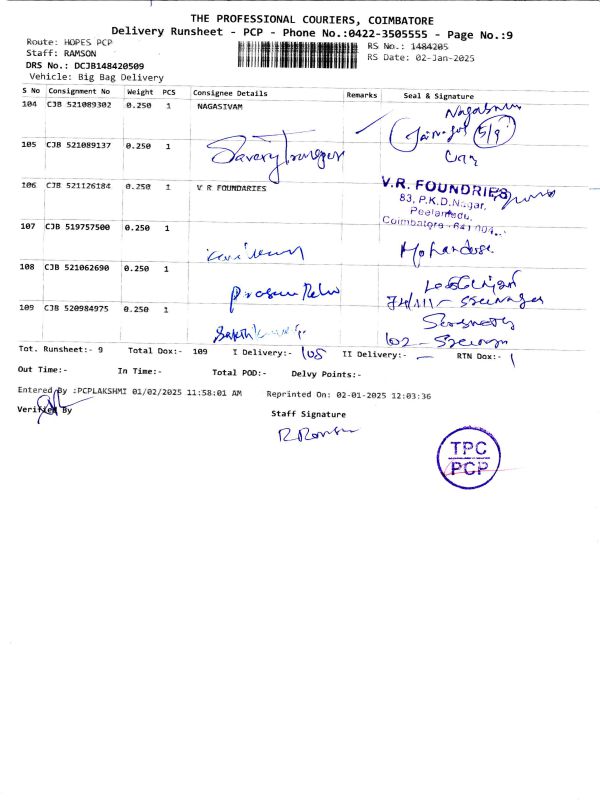 THE PROFESSIONAL COURIERS, COIMBATORE
Delivery Runsheet - PCP - Phone No.:0422-3505555 - Page No.:9
Route: HOPES PCP
RS No.: 1484205
Staff: RAMSON
RS Date: 02-Jan-2025
DRS No.: DCJB148420509
Vehicle: Big Bag Delivery
S No Consignment No Weight PCS Consignee Details Remarks Seal & Signature
104 CJB 521089302 0.250 1 NAGASIVAM
5/9
105 CJB 521089137 0.250 1
106 CJB 521126184 0.250 1 V R FOUNDARIES
V.R. FOUNDRIES
83, P.K.D.Nagar,
Peelamedu,
Coimbatore - 641 004.
107 CJB 519757500 0.250 1
108 CJB 521062690 0.250 1
109 CJB 520984975 0.250 1
Tot. Runsheet:- 9 Total Dox:- 109 I Delivery:- 108 II Delivery:- — RTN Dox:- 1
Out Time:- In Time:- Total POD:- Delvy Points:-
Entered By :PCPLAKSHMI 01/02/2025 11:58:01 AM Reprinted On: 02-01-2025 12:03:36
Verified By
Staff Signature
TPC
PCP